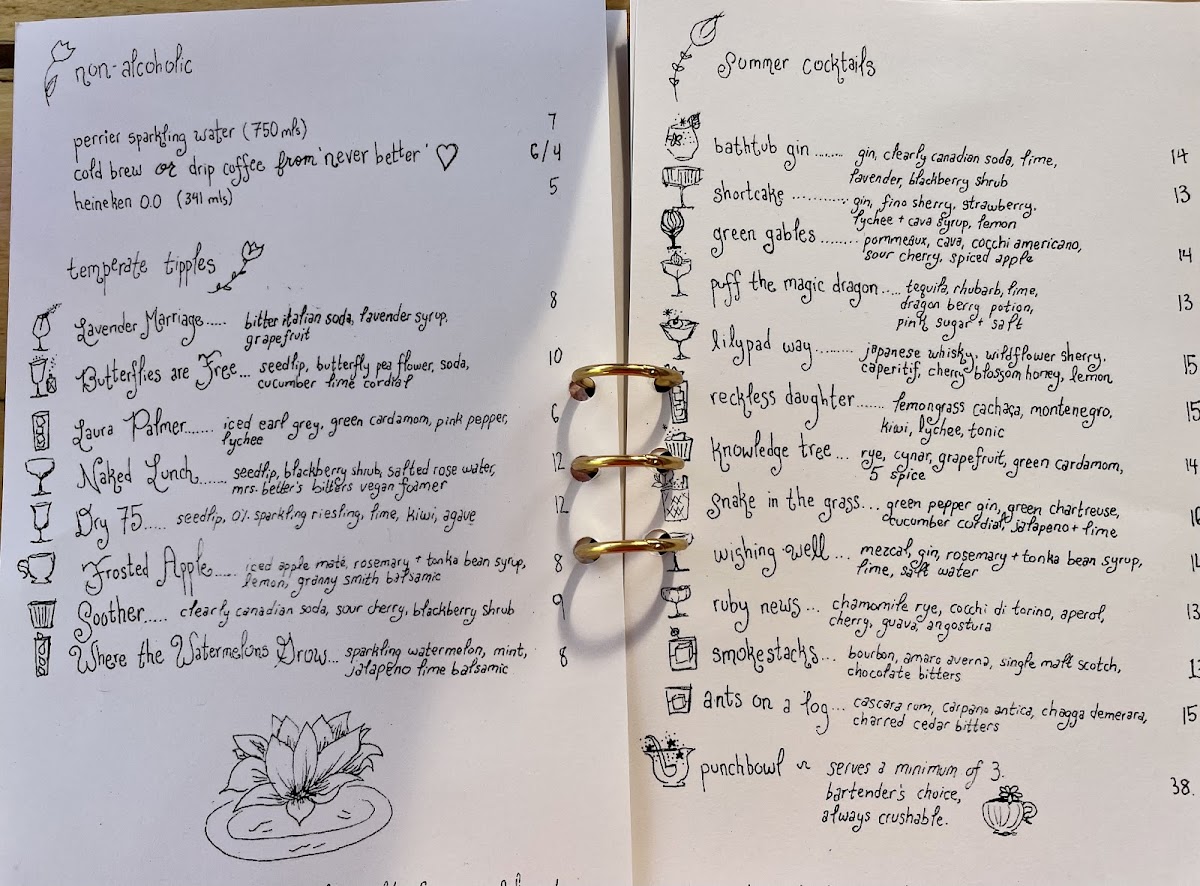 non-alcoholic
perrier sparkling water (750 mls) 7
cold brew or drip coffee from 'never better' ♡ 6/4
heineken 0.0 (341 mls) 5
temperate tipples
Lavender Marriage..... bitter italian soda, lavender syrup, 8
grapefruit
Butterflies are Free... seedlip, butterfly pea flower, soda, 10
cucumber lime cordial
Laura Palmer....... iced earl grey, green cardamom, pink pepper, 6
lychee
Naked Lunch....... seedlip, blackberry shrub, salted rose water, 12
mrs. better's bitters vegan foamer
Dry 75..... seedlip, 0% sparkling riesling, lime, kiwi, agave 12
Frosted Apple..... iced apple maté, rosemary + tonka bean syrup, 8
lemon, granny smith balsamic
Soother..... clearly canadian soda, sour cherry, blackberry shrub 9
Where the Watermelons Grow... sparkling watermelon, mint, 8
jalapeño lime balsamic
Summer cocktails
bathtub gin........ gin, clearly canadian soda, lime, 14
lavender, blackberry shrub
shortcake ............ gin, fino sherry, strawberry. 13
lychee + cava syrup, lemon
green gables ........ pommeaux, cava, cocchi americano, 14
sour cherry, spiced apple
puff the magic dragon..... tequila, rhubarb, lime, 13
dragon berry potion,
pink sugar + salt
lilypad way......... japanese whisky, wildflower sherry. 15
caperitif, cherry blossom honey, lemon
reckless daughter....... lemongrass cachaça, montenegro, 15
kiwi, lychee, tonic
knowledge tree ... rye, cynar, grapefruit, green cardamom, 14
5 spice
snake in the grass... green pepper gin, green chartreuse,
cucumber cordial, jalapeno + lime
wishing well ... mezcal, gin, rosemary + tonka bean syrup,
lime, salt water
ruby news ... chamomile rye, cocchi di torino, aperol, 13
cherry, guava, angostura
smokestacks... bourbon, amaro averna, single malt scotch,
chocolate bitters
ants on a log... cascara rum, carpano antica, chagga demerara, 15
charred cedar bitters
punchbowl ~ serves a minimum of 3.
bartender's choice, 38.
always crushable.